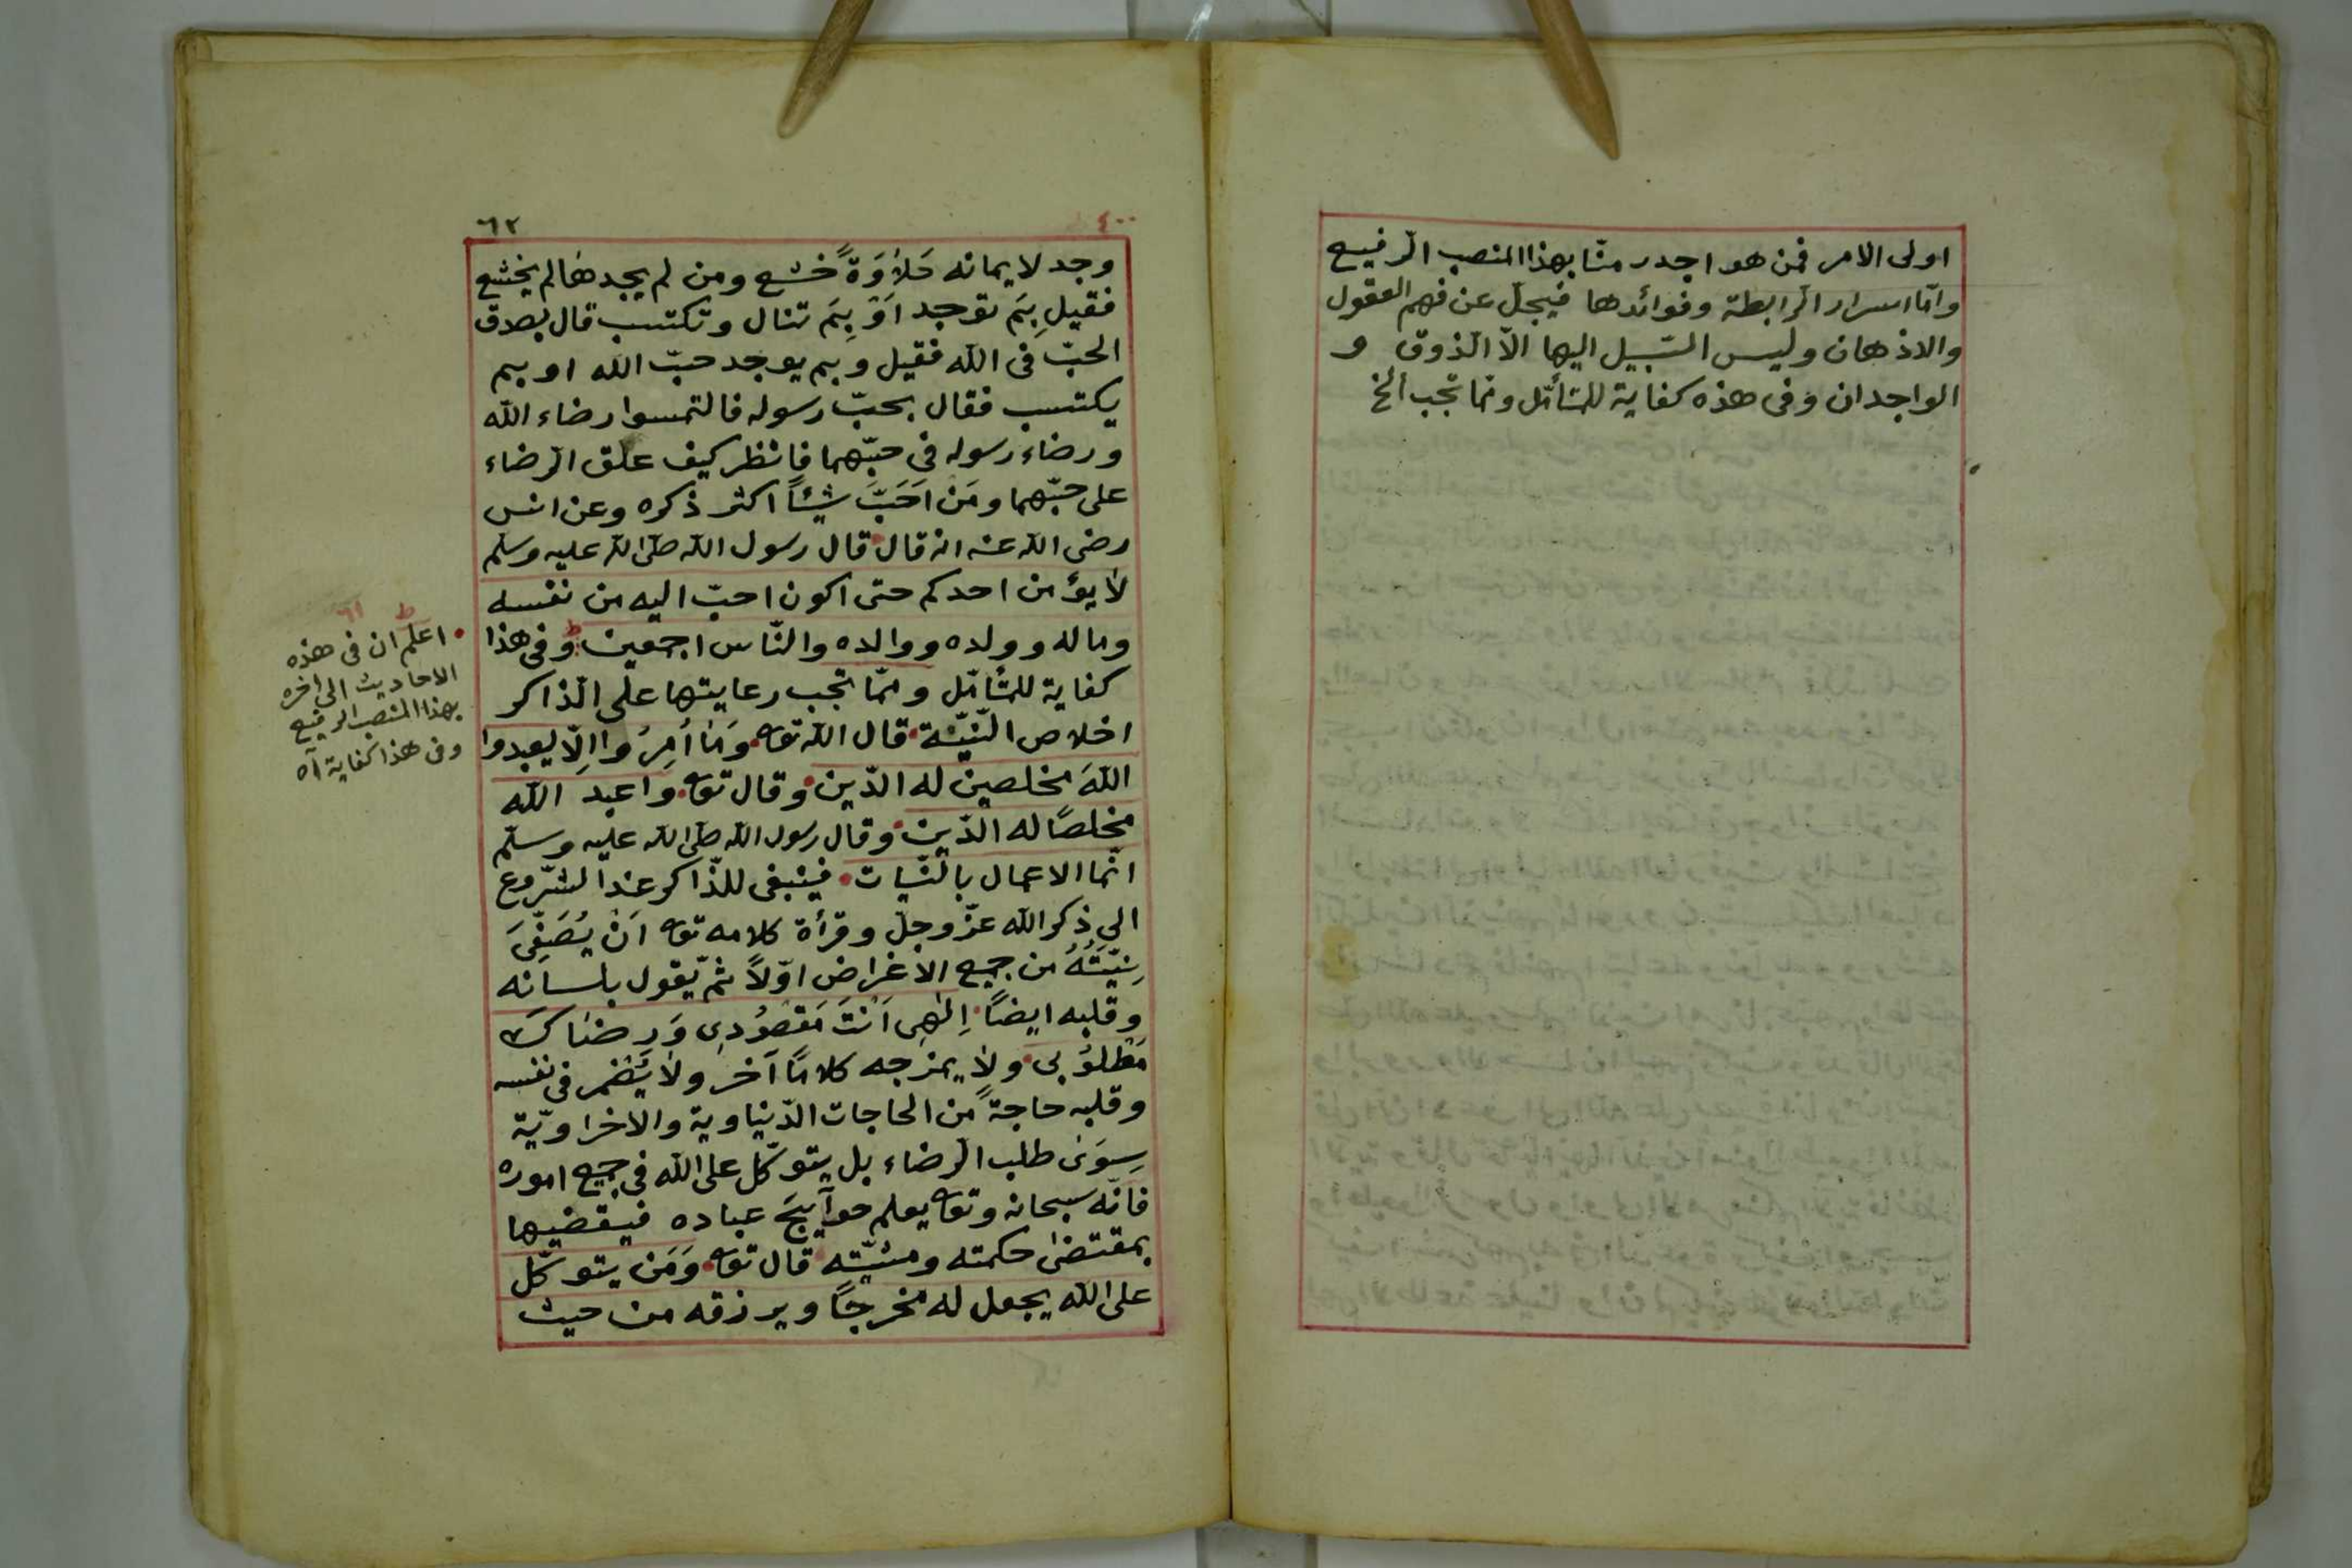 اولى الامر فمن هو اجدر منّا بهذا المنصب الرّفيع
وامّا اسرار الرّابطة وفوائدها فيجلّ عن فهم العقول
والاذهان وليس السّبيل اليها الّا الذّوق و
الواجدان وفى هذه كفاية للمتأمّل وممّا تجب الخ
٤٠٠
٦٢
وجد لايمانه حَلاَوَةً خشع ومن لم يجدها لم يخشع
فقيل بِمَ توجد اَوْ بِمَ تنال وتكتسب قال بصدق
الحبّ فى الله فقيل وبم يوجد حبّ الله او بم
يكتسب فقال بحبّ رسوله فالتمسوا رضاء الله
ورضاء رسوله فى حبّهما فانظر كيف علّق الرّضاء
على حبّهما ومَن اَحَبَّ شيئاً اكثر ذكره وعن انس
رضى الله عنه انه قال قال رسول الله صلّى الله عليه وسلم
لا يؤمن احدكم حتى اكون احبّ اليه من نفسه
وماله وولده ووالده والنّاس اجمعين وفى هذا
كفاية للمتأمّل وممّا تجب رعايتها على الذّاكر
اخلاص النّيّة قال الله تعه وَمَا اُمِرُوا اِلّا ليعبدوا
اللهَ مخلصين له الدّين وقال تعه واعبد الله
مخلصاً له الدّين وقال رسول الله صلّى الله عليه وسلّم
انّما الاعمال بالنّيات فينبغى للذّاكر عند الشّروع
الى ذكر الله عزّ وجلّ وقرأة كلامه تعه اَنْ يُصَفِّىَ
نِيَّتُهُ من جميع الاغراض اوّلاً ثمّ يقول بلسانه
وقلبه ايضاً اِلٰهِى اَنْتَ مَقْصُودِى وَرِضَاكَ
مَطْلُوبى ولا يمزجه كلاماً آخر ولا يُضمر فى نفسه
وقلبه حاجةً من الحاجات الدّنياوية والاخراويّة
سِوَى طلب الرّضاء بل يتوكّل على الله فى جميع اموره
فانّه سبحانه وتعه يعلم حوآيجَ عباده فيقضيها
بمقتضى حكمته ومشيّته قال تعه وَمَن يتوكّل
على الله يجعل له مخرجاً ويرزقه من حيث
ط ٦١
اعلم ان فى هذه
الاحاديث الى اخره
بهذا المنصب الرفيع
وفى هذا كفاية اه